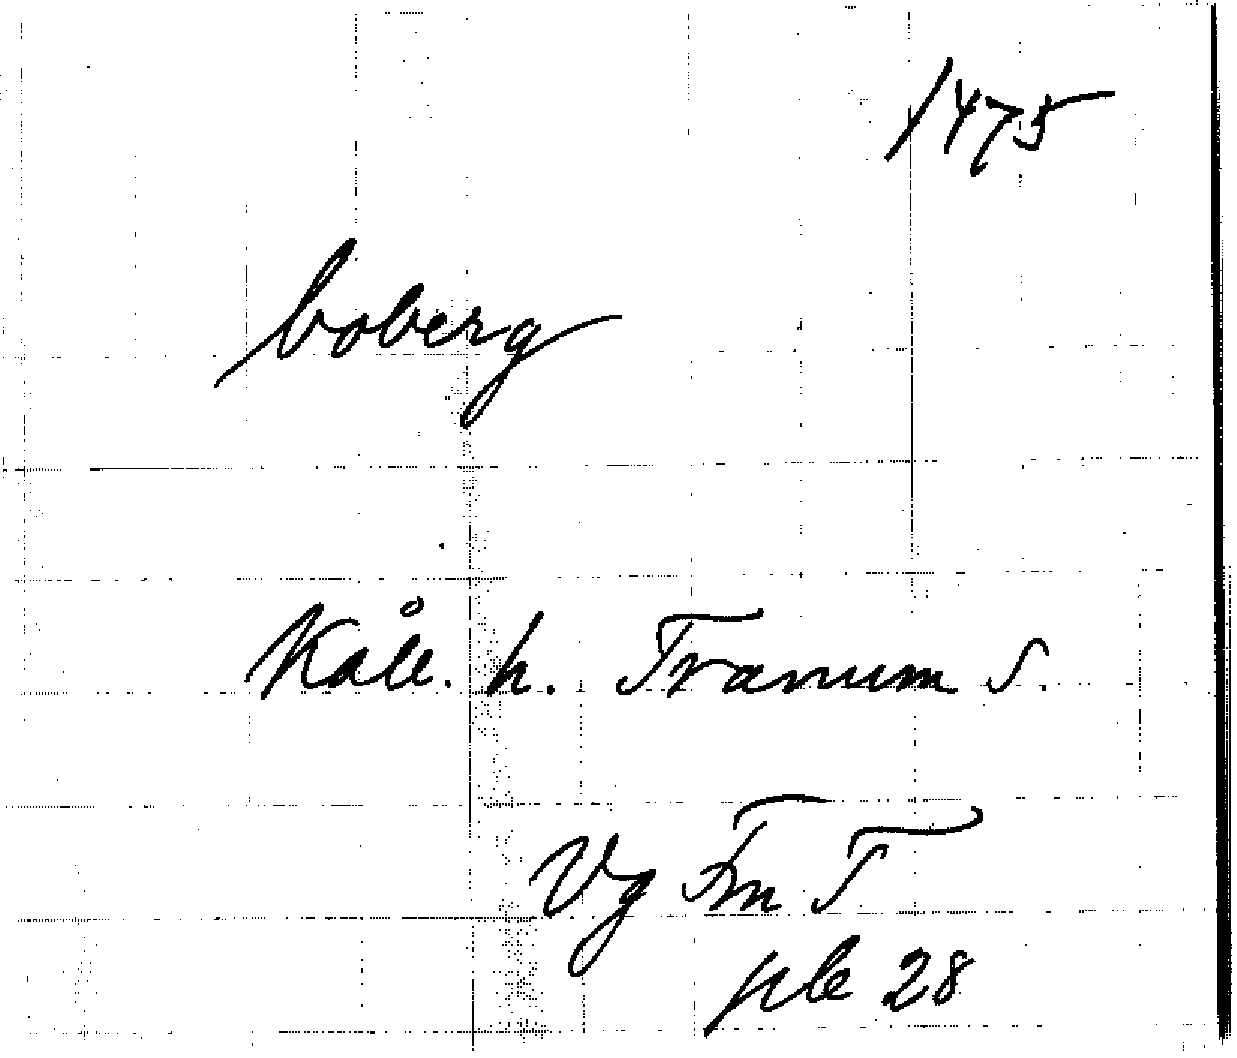 1475
boberg
Kåll. h. Tranum S.
Vg Fm T
ple 28